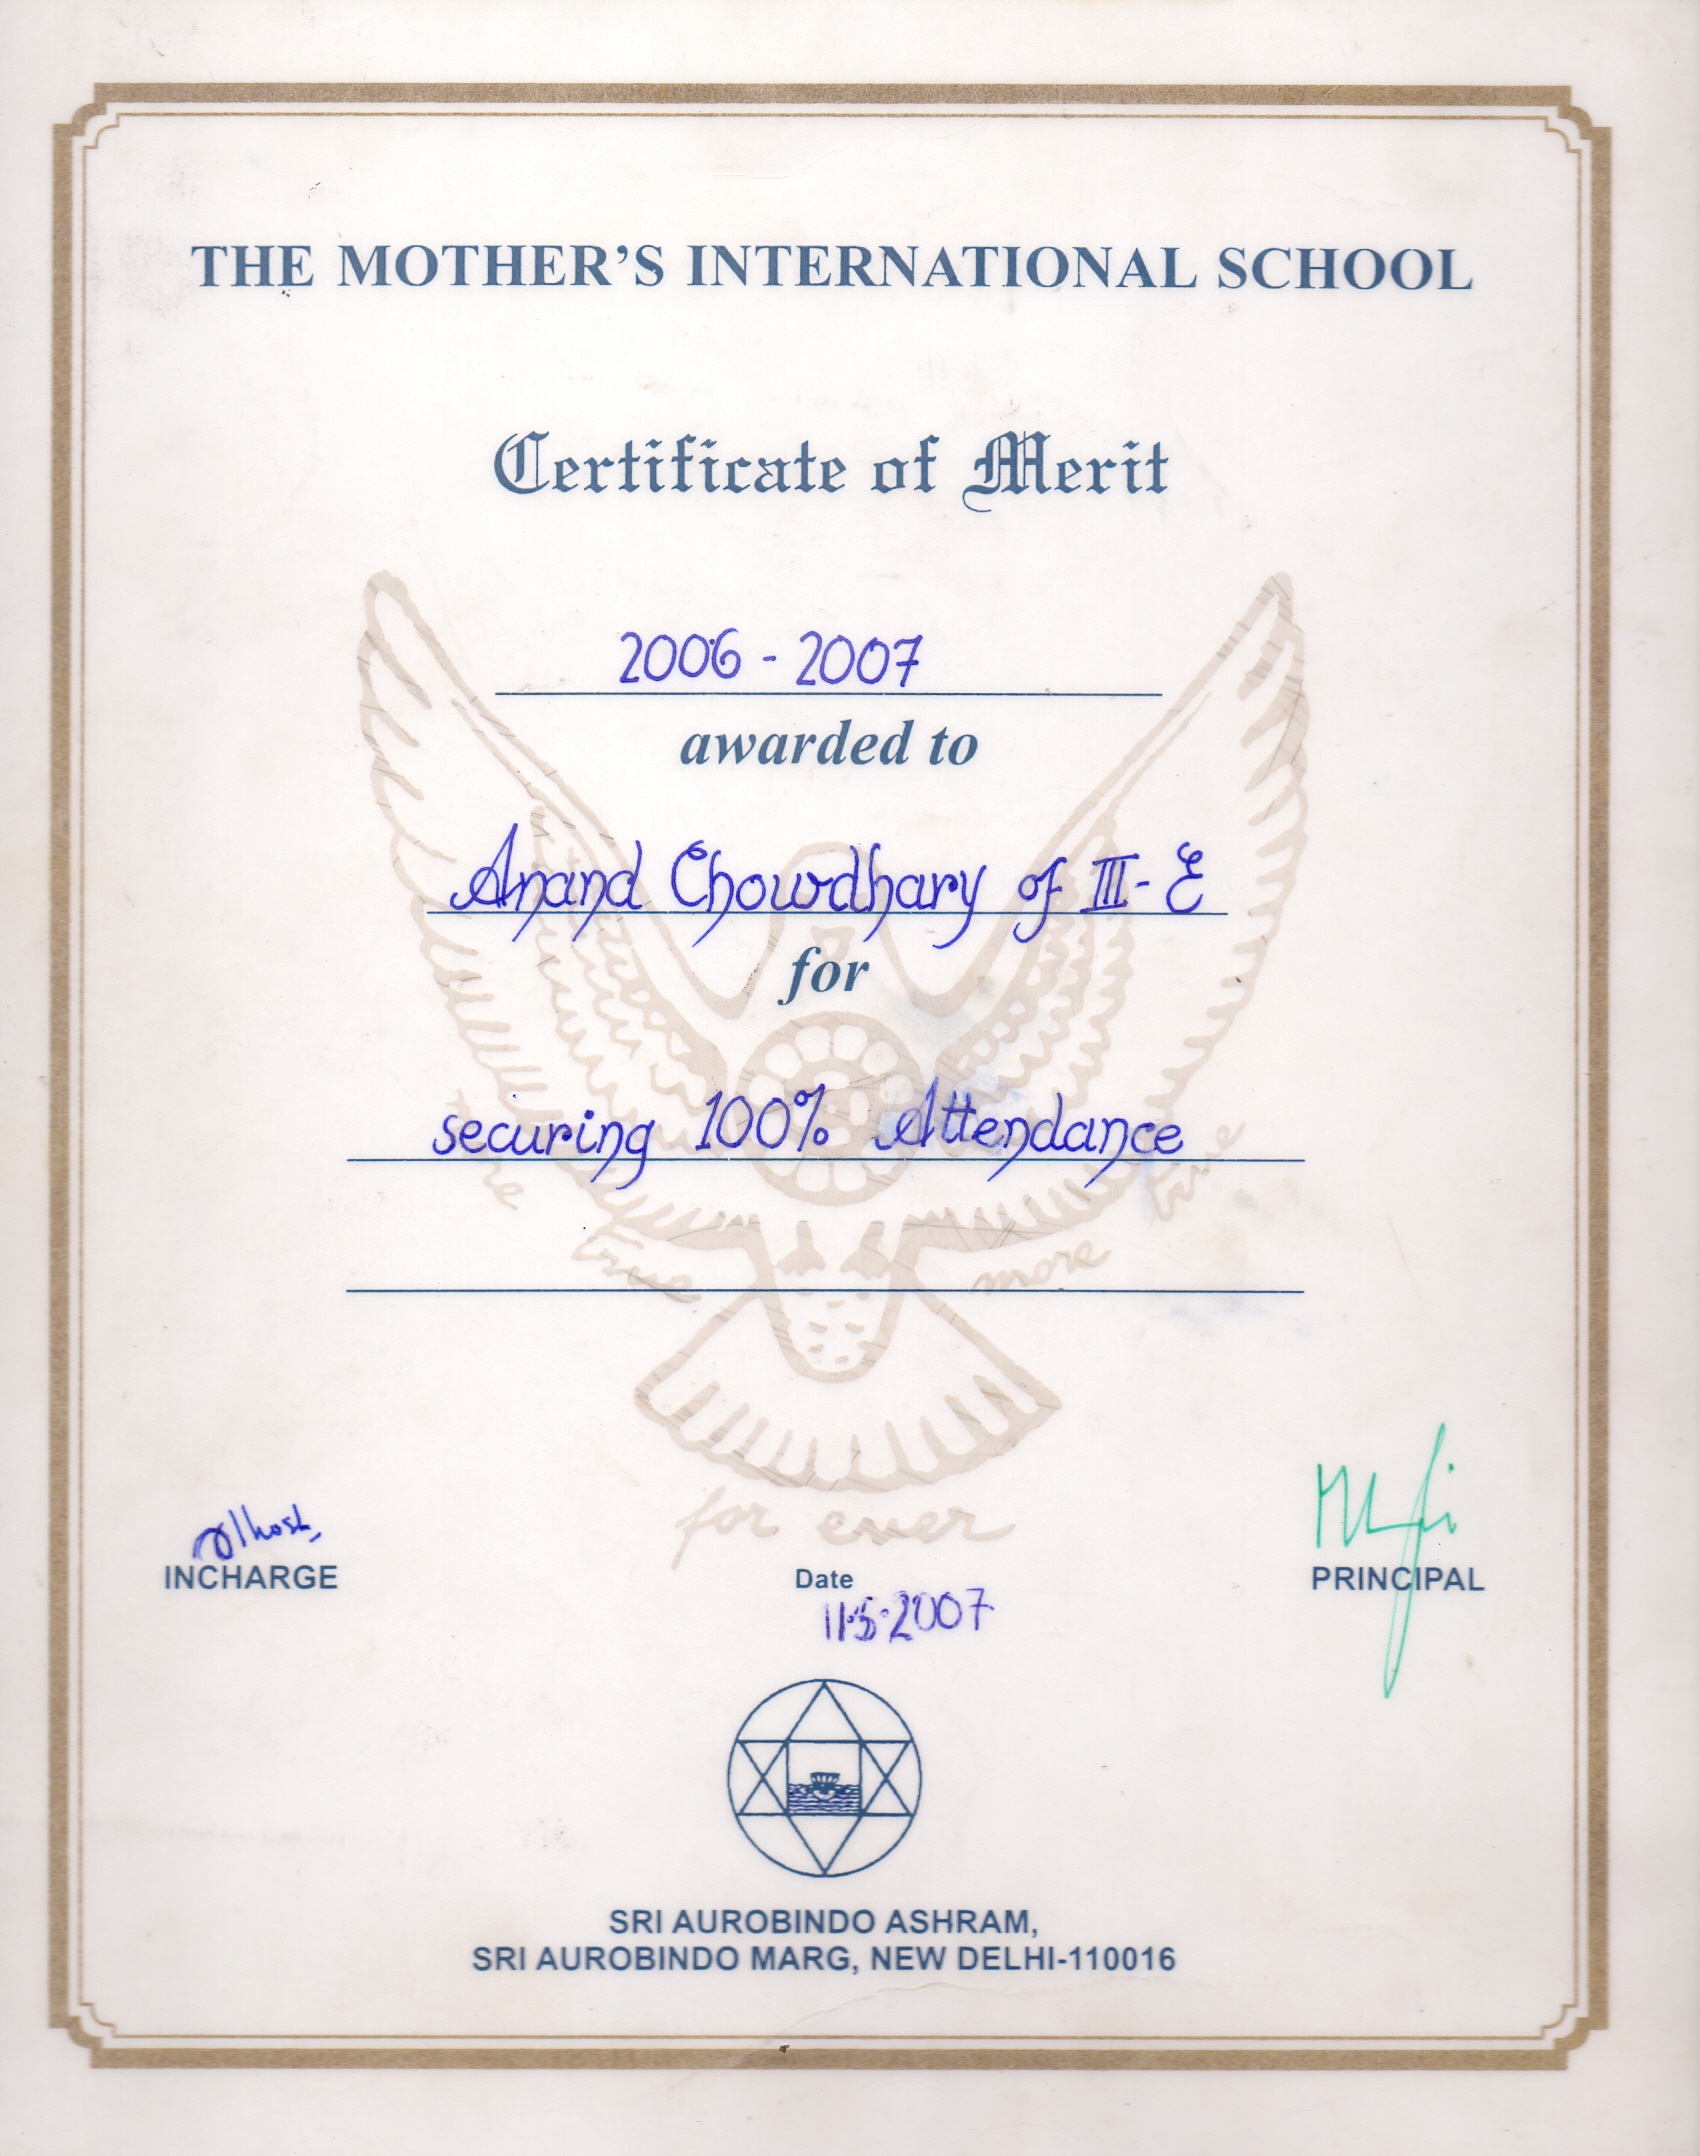 THE MOTHER'S INTERNATIONAL SCHOOL
Certificate of Merit
2006 - 2007
awarded to
Anand Chowdhary of III - E
for
securing 100% Attendance
true
true more
for ever
INCHARGE
Date
PRINCIPAL
11.5.2007
SRI AUROBINDO ASHRAM,
SRI AUROBINDO MARG, NEW DELHI-110016